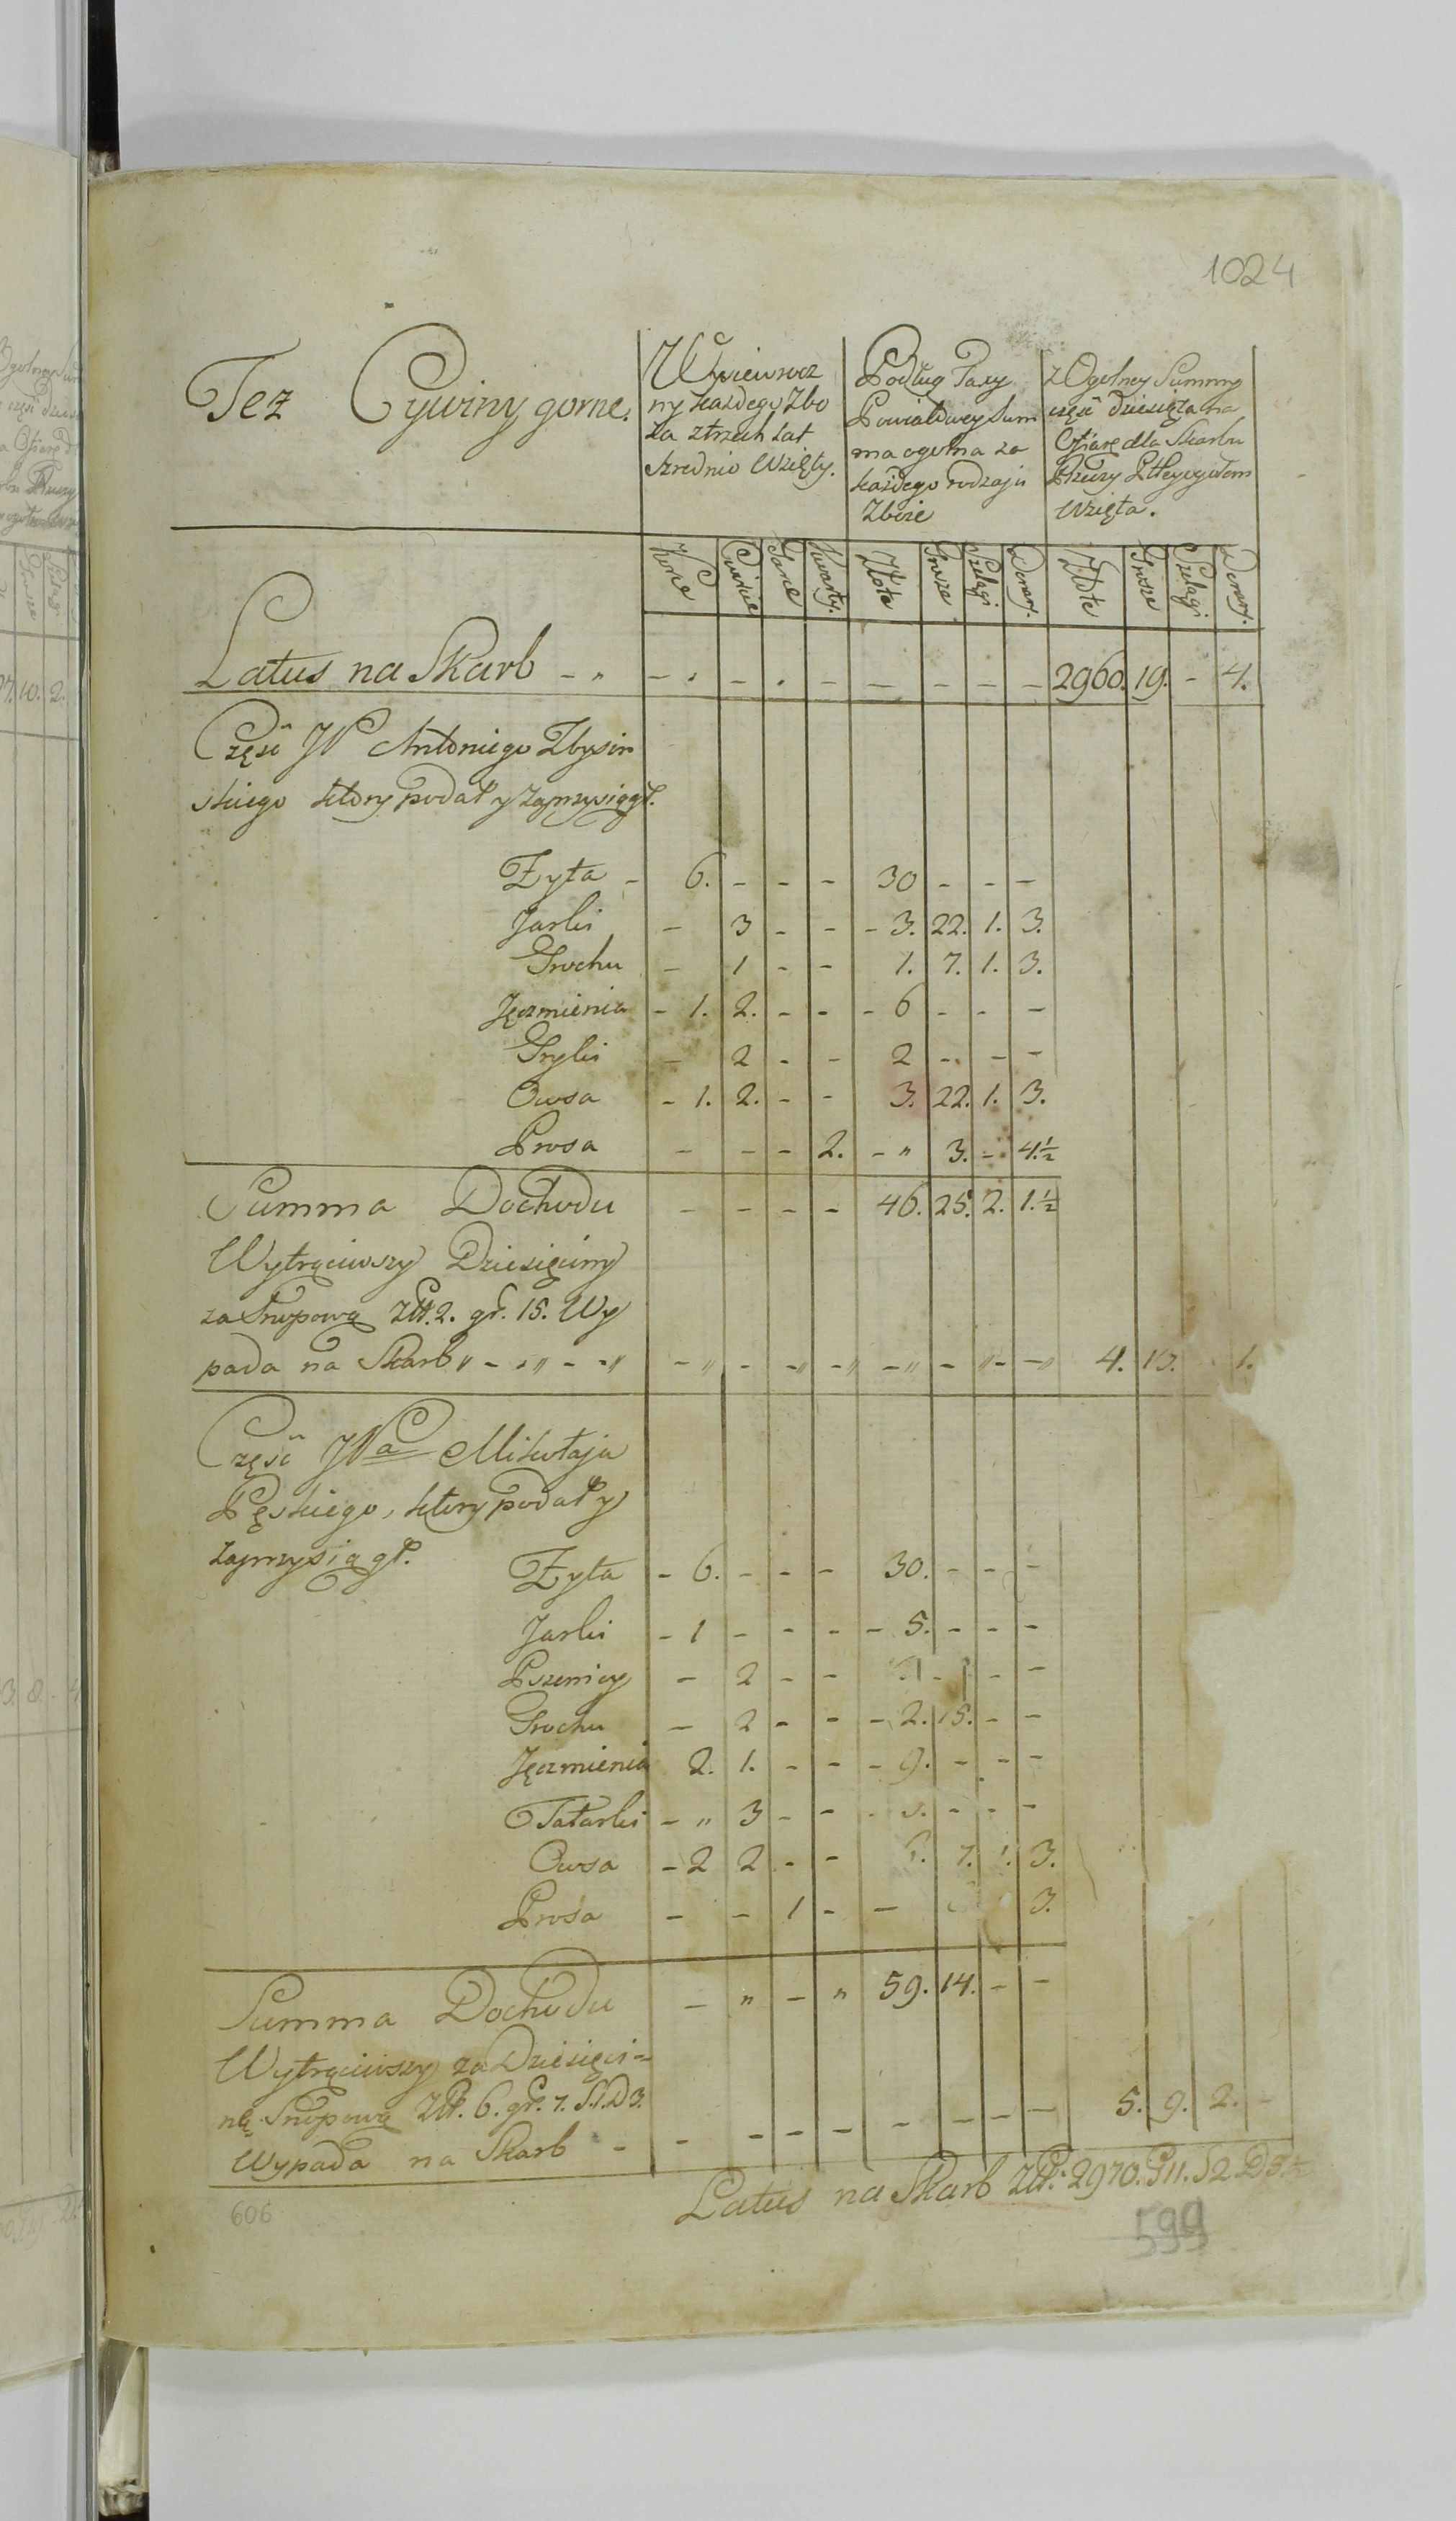 1024
Też Cywiny gorne.
Wysiew rocz
ny każdego Zbo
ża z trzech Lat
szrednio Wzięty.
Podług Taxy
Powiatowey Sum
ma ogolna za
każdego rodzaju
Zboże
z Ogolney Summy
część dziesiąta na
Ofiarę dla Skarbu
Rzczy Pttey ogołem
wzięta.
Korce Cwierci Garce Kwarty. Złote Grosze Szelągi Denary. Złote Grosze Szelągi Denary.
Latus na Skarb - " - . - . - - - - - 2960. 19. - 4.
Część JP Antoniego Zbysin
skiego ktory podał y zaprzysiągł.
Zyta - 6. - - - 30 - - -
Jarki - 3 - - - 3. 22. 1. 3.
Grochu - 1 - - 1. 7. 1. 3.
Jęczmienia - 1. 2. - - - 6 - - -
Gryki - 2 - - 2 - - -
Owsa - 1. 2. - - 3. 22. 1. 3.
Prosa - - - 2. - " 3. - 4.½
Summa Dochodu - - - - 46. 25. 2. 1.½
Wytrąciwszy Dziesięciny
za Snopową Złt. 2. gr. 15. Wy
pada na Skarb " - . " - - " - " - - " - " - " - " - - " 4. 1.
Część JPa Mikołaja
Pęskiego, ktory podał y
zaprzysiągł.
Zyta - 6. - - - 30. - - -
Jarki - 1 - - - - 5. - - -
Pszenicy - 2 - - - - -
Grochu - 2 - - - 2. 15. - -
Jęczmienia 2. 1. - - - 9. - - -
Tatarki - " 3 - - - - -
Owsa - 2 2 - - 7. 3.
Prosa - - 1 - - 3.
Summa Dochodu - " - " 59. 14. - -
Wytrąciwszy za Dziesięci=
nę Snopową Złt. 6. gr. 7. S.1. D3.
Wypada na Skarb - - - - - - - - - 5. 9. 2. -
Latus na Skarb Złt: 2970. G11. S2. D5.½
606
599